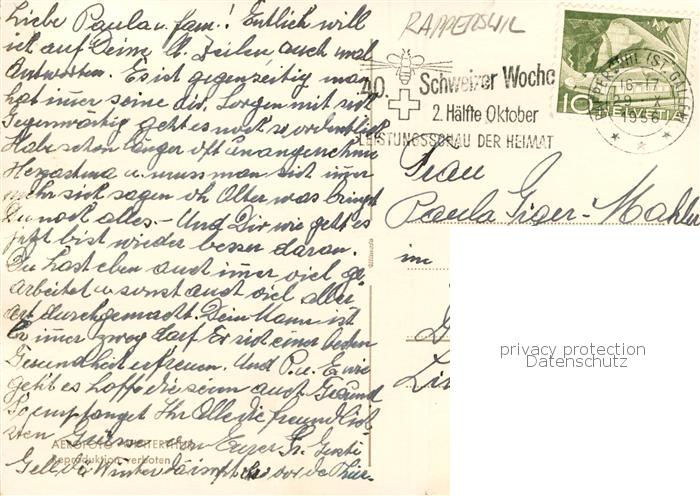 Liebe Paula u. fam.! Entlich will
ich auf Deine lb. Zeilen auch mal
Antworten. Es ist gegenzeitig man
hat imer seine div. Sorgen mit sich
Gegenwärtig geht es noch so ordentlich
Habe schon länger oft unangenehme
Herzastma u. muss man sich imer
mehr sich sagen oh Alter was bringst
Du noch alles. – Und Dir wie geht es
jetzt bist wieder besser daran.
Du hast eben auch imer viel ge-
arbeitet u. sonst auch viel aller-
durchgemacht. Dein Mann ist
Er imer zweg darf Er sich einer
Gesundheit erfreuen. Und P. u. E wie
geht es hoffe die seien auch Gesund
So empfanget Ihr Alle die freundlich
sten Grüsse von Eurer
Gell Winter vor de Thür.
AEROFOTO WINTERTHUR
Reproduktion verboten
Ultimate
RAPPERSWIL
40. Schweizer Woche
2. Hälfte Oktober
LEISTUNGSSCHAU DER HEIMAT
RAPPERSWIL (ST. GALLEN)
16-17
29. X.
1956
10 HELVETIA
Frau
Paula Giger-Mahler
im
privacy protection
Datenschutz